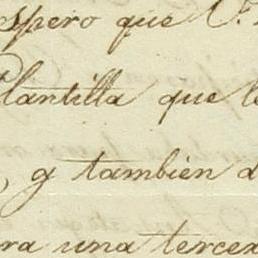 spero que V.
Plantilla que le
, y tambien d
ra una tercer